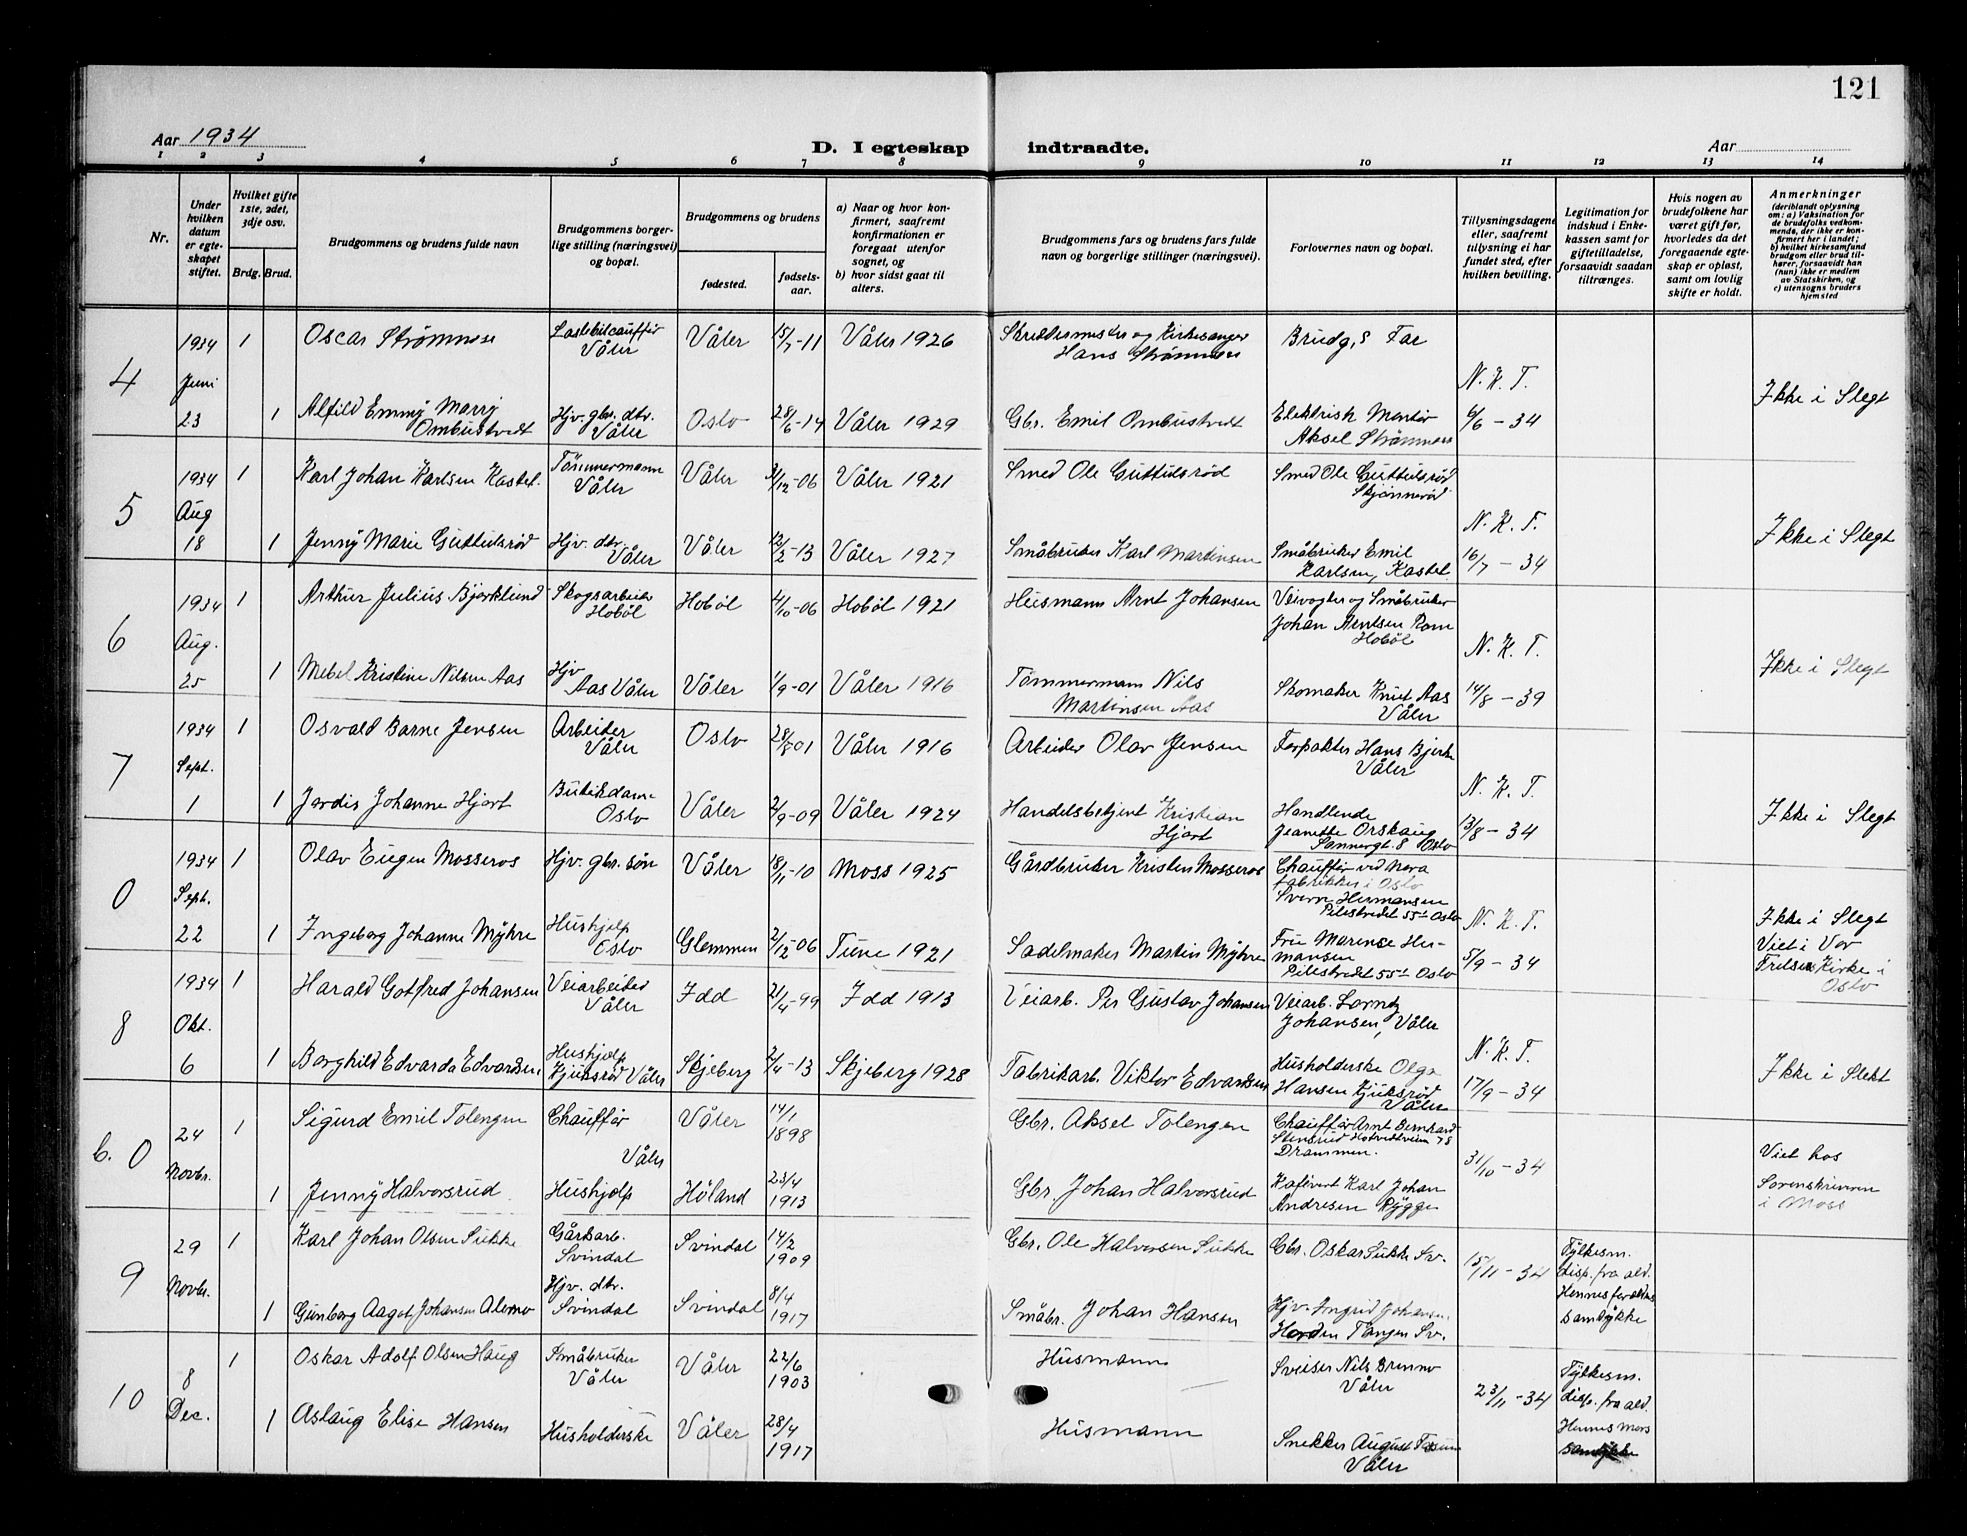 121
Aar 1934
D. I egteskap indtraadte.
Aar
1 2 3 4 5 6 7 8 9 10 11 12 13 14
Nr.
Under
hvilken
datum
er egte-
skapet
stiftet.
Hvilket gifte
1ste, 2det,
3dje osv.
Brdg. Brud.
Brudgommens og brudens fulde navn
Brudgommens borger-
lige stilling (næringsvei)
og bopæl.
Brudgommens og brudens
fødested.
fødsels-
aar.
a) Naar og hvor kon-
firmert, saafremt
konfirmationen er
foregaat utenfor
sognet, og
b) hvor sidst gaat til
alters.
Brudgommens fars og brudens fars fulde
navn og borgerlige stillinger (næringsvei).
Forlovernes navn og bopæl.
Tillysningsdagene
eller, saafremt
tillysning ei har
fundet sted, efter
hvilken bevilling.
Legitimation for
indskud i Enke-
kassen samt for
giftetilladelse,
forsaavidt saadan
tiltrænges.
Hvis nogen av
brudefolkene har
været gift før,
hvorledes da det
foregaaende egte-
skap er opløst,
samt om lovlig
skifte er holdt.
Anmerkninger
(deriblandt oplysning
om: a) Vaksination for
de brudefolks vedkom-
mende, der ikke er kon-
firmert her i landet;
b) hvilket kirkesamfund
brudgom eller brud til-
hører, forsaavidt han
(hun) ikke er medlem
av Statskirken, og
c) utensogns bruders
hjemsted
4
1934
Juni
23
1
Oscar Strømnes
Lastebilcauffør
Våler
Våler
15/7-11
Våler 1926
Skreddermester og Kirkesanger
Hans Strømnes
Brudg,s Far
1
Alfild Emmy Marry
Ombustvedt
Hjv. gbr. dtr.
Våler
Oslo
28/6-14
Våler 1929
Gbr. Emil Ombustvedt
Elektrisk Montør
Aksel Strømnes
N. K. T.
6/6 - 34
Ikke i Slegt
5
1934
Aug
18
1
Karl Johan Karlsen Kastel.
Tømmermann
Våler
Våler
31/12-06
Våler 1921
Smed Ole Guttulsrød
Smed Ole Guttulsrød
Skjønnerød
1
Jenny Marie Guttulsrød
Hjv. dtr.
Våler
Våler
12/2-13
Våler 1927
Småbruker Karl Martinsen
Småbruker Emil
Karlsen, Kastel
N. K. T.
16/7 - 34
Ikke i Slegt
6
1934
Aug.
25
1
Arthur Julius Bjørklund
Skogsarbeider
Hobøl
Hobøl
4/10-06
Hobøl 1921
Husmann Arnt Johansen
Veivogter og Småbruker
Johan Arntsen Rom
Hobøl
1
Mebel Kristine Nilsen Aas
Hjv
Aas Våler
Våler
1/9-01
Våler 1916
Tømmermann Nils
Martinsen Aas
Skomaker Knut Aas
Våler
N. K. T.
14/8 - 39
Ikke i Slegt
7
1934
Sept.
1
1
Osvald Barne Jensen
Arbeider
Våler
Oslo
28/8 01
Våler 1916
Arbeider Olav Jensen
Forpakter Hans Bjerke
Våler
1
Jordis Johanne Hjort
Butikdame
Oslo
Våler
2/9-09
Våler 1924
Handelsbetjent Kristian
Hjort
Handlende
Jeanette Orskaug
Sannergt. 8 Oslo
N. K. T.
13/8 - 34
Ikke i Slegt
0
1934
Sept.
22
1
Olav Eugen Mosseros
Hjv. gbr. søn
Våler
18/11-10
Moss 1925
Gårdbruker Kristen Mosseros
Chauffør ved Nora
fabrikker i Oslo
Sverre Hermansen
Pilestredet 55¹ Oslo
1
Ingeborg Johanne Myhre
Hushjelp
Oslo
Glemmen
2/12-06
Tune 1921
Sadelmaker Martin Myhre
Frue Marense Her-
mansen
Pilestredet 55¹ Oslo
N. K. T.
5/9 - 34
Ikke i Slegt
Viet i Vor
Frelsers Kirke i
Oslo
8
1934
Okt.
6
1
Harald Gotfred Johansen
Veiarbeider
Våler
Idd
21/4-99
Idd 1913
Veiarb. Per Gustav Johansen
Veiarb. Lorntz
Johansen, Våler
1
Borghild Edvarda Edvardsen
Hushjelp
Kjuksrød Våler
Skjeberg
2/4-13
Skjeberg 1928
Fabrikarb. Viktor Edvardsen
Husholderske Olga
Hansen Kjuksrød
Våler
N. K. T.
17/9 - 34
Ikke i Slekt
b. 0
24
Novbr.
1
Sigurd Emil Tolengen
Chauffør
Våler
Våler
14/1
1898
Gbr. Aksel Tolengen
Chauffør Arnt Bernhard
Stensrud Hotvedtveien 78
Drammen.
1
Jenny Halvorsrud
Hushjelp
Høland
23/4
1913
Gbr. Johan Halvorsrud
Kafévert Karl Johan
Andresen Rygge
31/10 - 34
Viet hos
Sorenskriveren
i Moss
9
29
Novbr.
1
Karl Johan Olsen Sukke
Gårsarb.
Svindal
Svindal
14/2
1909
Gbr. Ole Halvorsen Sukke
Gbr. Oskar Sukke Sv.
1
Gunborg Aagot Johansen Alermo
Hjv. dtr.
Svindal
Svindal
8/4
1917
Småbr. Johan Hansen
Hjv. Ingrid Johansen
Tangen Sv.
15/11 - 34
Fylkesm.
disp. fra ald.
Hennes foreldres
samtykke
10
8
Dec.
1
Oskar Adolf Olsen Haug
Småbruker
Våler
Våler
22/6
1903
Husmann
Sveiser Nils Brenno
Våler
1
Aslaug Elise Hansen
Husholderske
Våler
28/4
1917
Husmann
Snekker August
Våler
23/11 - 34
Fylkesm.
disp. fra ald.
Hennes mors
samtykke